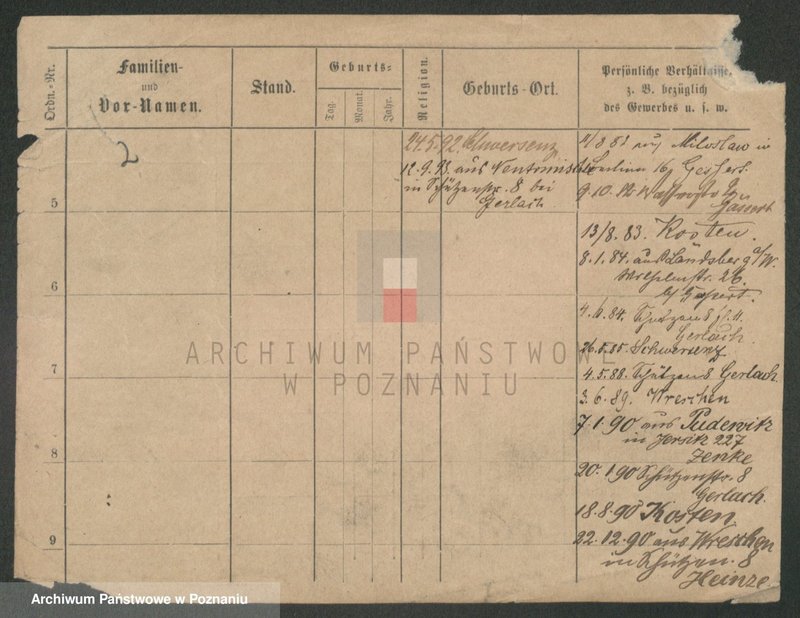 Ordn.-Nr.
Familien-
und
Vor-Namen.
Stand.
Geburts-
Tag.
Monat.
Jahr.
Religion.
Geburts-Ort.
Persönliche Verhältnisse,
z. B. bezüglich
des Gewerbes u. s. w.
2
24.5.92. Schwersenz
12.9.93. aus
in Schützenstr. 8 bei
Gerlach
Miloslaw in
9.10.
13/8. 83. Kosten.
8.1.84. aus Landsberg a/W.
26.
4.6.84.
Gerlach.
26.5.85. Schwersenz
4.5.88. Schützen 8 Gerlach.
3.6.89. Wreschen
7.1.90 aus Pudewitz
in Jersitz 227
Zenke
20.1.90 Schützenstr. 8
Gerlach.
18.8.90 Kosten
22.12.90 aus Wreschen
in Schützen. 8
Heinze
5
6
7
8
9
ARCHIWUM PAŃSTWOWE
W POZNANIU
Archiwum Państwowe w Poznaniu